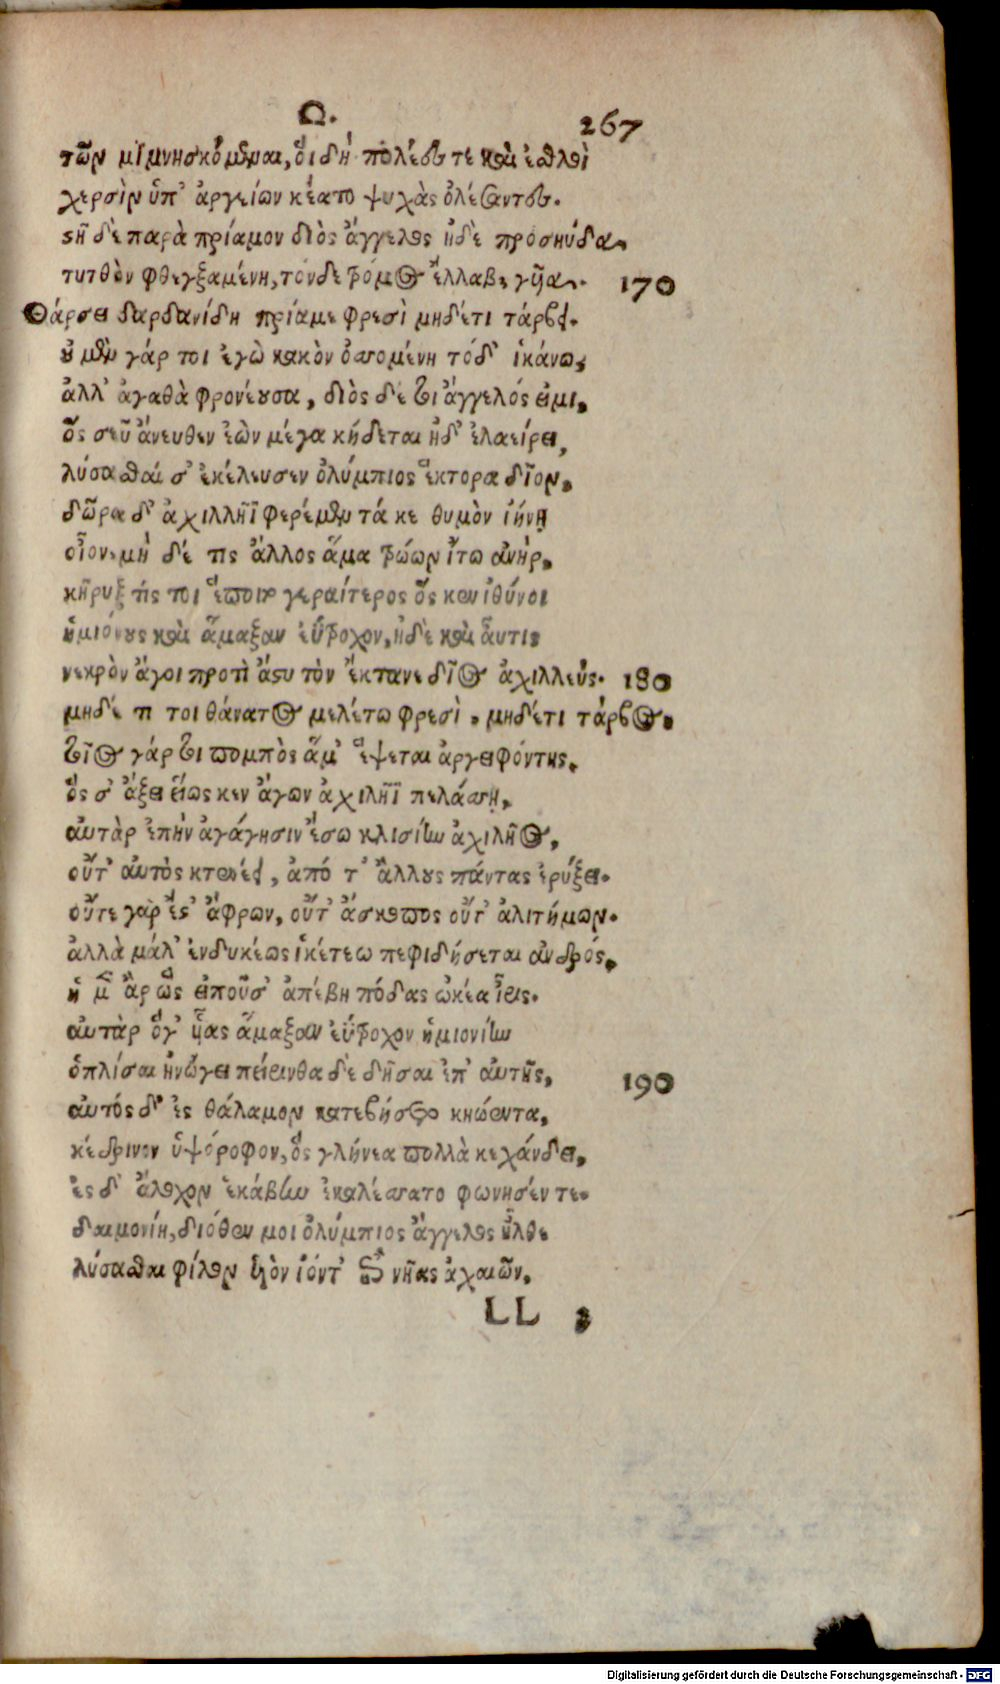 Ω.
267
τῶν μιμνησκόμεναι, οἳ δὴ πολέες τε καὶ ἐσθλοὶ
χερσὶν ὑπ' ἀργείων κέατο ψυχὰς ὀλέσαντες.
στῆ δὲ παρὰ πρίαμον διὸς ἄγγελος ἠδὲ προσηύδα,
τυτθὸν φθεγξαμένη, τόνδε τρόμος ἔλλαβε γυῖα.
170
Θάρσει δαρδανίδη πρίαμε φρεσὶ μηδέτι τάρβει.
οὐ μὲν γάρ τοι ἐγὼ κακὸν ὀσσομένη τόδ' ἱκάνω,
ἀλλ' ἀγαθὰ φρονέουσα, διὸς δέ τοι ἄγγελός εἰμι,
ὅς σεῦ ἄνευθεν ἐὼν μέγα κήδεται ἠδ' ἐλεαίρει,
λύσασθαί σ' ἐκέλευσεν ὀλύμπιος ἕκτορα δῖον,
δῶρα δ' ἀχιλλῆϊ φερέμεν τά κε θυμὸν ἰήνῃ
οἶον, μὴ δέ τις ἄλλος ἅμα τρώων ἴτω ἀνήρ,
κῆρυξ τίς τοι ἕποιτο γεραίτερος ὅς κεν ἰθύνοι
ἡμιόνους καὶ ἄμαξαν ἐΰτροχον, ἠδὲ καὶ αὖτις
νεκρὸν ἄγοι προτὶ ἄστυ τὸν ἔκτανε δῖος ἀχιλλεύς.
180
μηδέ τι τοι θάνατος μελέτω φρεσὶ, μηδέτι τάρβος,
τοῖος γάρ τοι πομπὸς ἅμ' ἕψεται ἀργειφόντης,
ὅς σ' ἄξει εἵως κεν ἄγων ἀχιλῆϊ πελάσσῃ,
αὐτὰρ ἐπὴν ἀγάγησιν ἔσω κλισίην ἀχιλῆος,
οὔτ' αὐτὸς κτενέει, ἀπό τ' ἄλλους πάντας ἐρύξει.
οὔτε γάρ ἔστ' ἄφρων, οὔτ' ἄσκοπος οὔτ' ἀλιτήμων.
ἀλλὰ μάλ' ἐνδυκέως ἱκέτεω πεφιδήσεται ἀνδρός,
ἡ μὲν ἂρ ὣς εἰποῦσ' ἀπέβη πόδας ὠκέα ἶρις.
αὐτὰρ ὅγ' υἷας ἄμαξαν ἐΰτροχον ἡμιονίην
ὁπλίσαι ἠνώγει πείρινθα δὲ δῆσαι ἐπ' αὐτῆς,
190
αὐτός δ' ἐς θάλαμον κατεβήσετο κηώεντα,
κέδρινον ὑψόροφον, ὃς γλήνεα πολλὰ κεχάνδει,
ἐς δ' ἄλοχον ἑκάβην ἐκαλέσσατο φωνησέν τε.
δαιμονίη, διόθεν μοι ὀλύμπιος ἄγγελος ἦλθε
λύσασθαι φίλον υἱὸν ἰόντ' ἐπὶ νῆας ἀχαιῶν,
LL 3
Digitalisierung gefördert durch die Deutsche Forschungsgemeinschaft - DFG